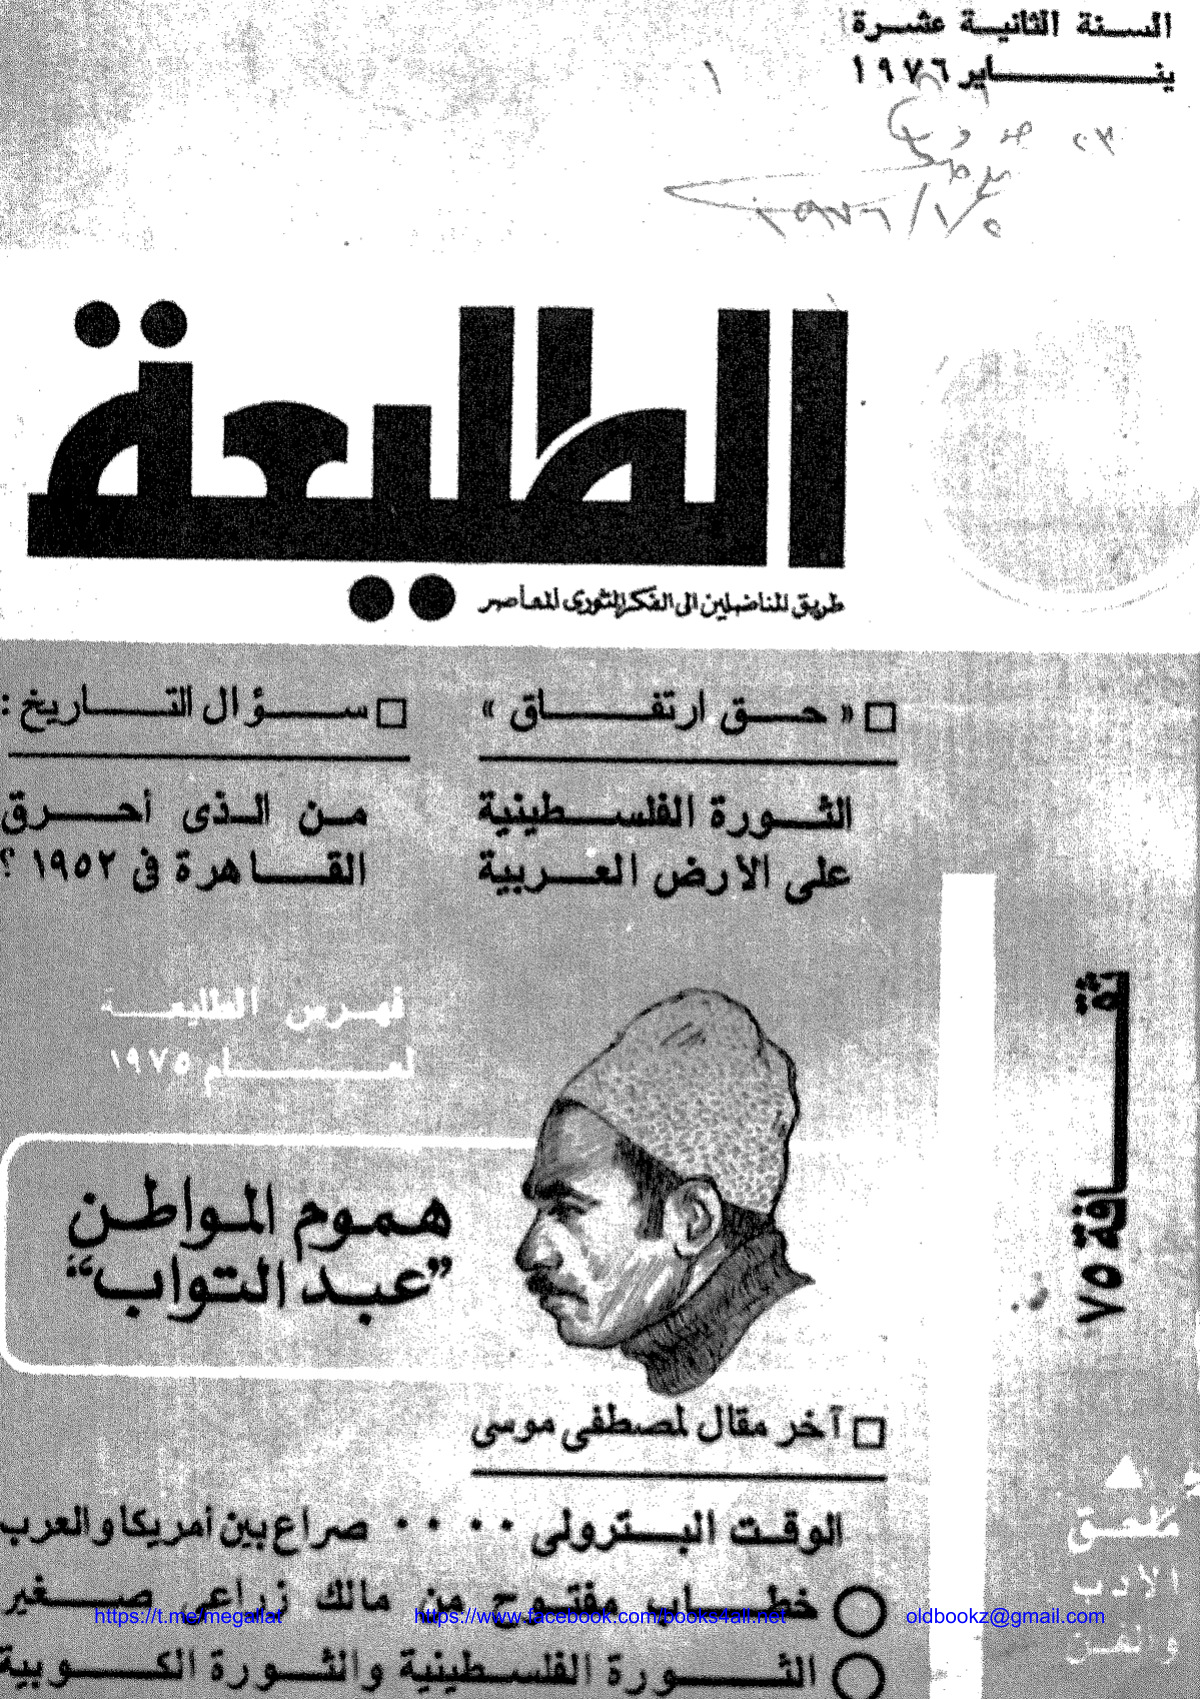 السنة الثانية عشرة
يناير ١٩٧٦
١
١٩٧٦/١/٥
الطليعة
طريق المناضلين الى الفكر الثورى المعاصر
« حق ارتفاق »
الثورة الفلسطينية
على الأرض العربية
سؤال التاريخ :
من الذى أحرق
القاهرة فى ١٩٥٢ ؟
فهرس الطليعة
لعام ١٩٧٥
هموم المواطن
"عبد التواب"
ثقافة ٧٥
آخر مقال لمصطفى موسى
الوقت البترولى .... صراع بين أمريكا والعرب
خطاب مفتوح من مالك زراعى صغير
الثورة الفلسطينية والثورة الكوبية
ملحق
الادب
والفن
https://t.me/megallat
https://www.facebook.com/books4all.net
oldbookz@gmail.com